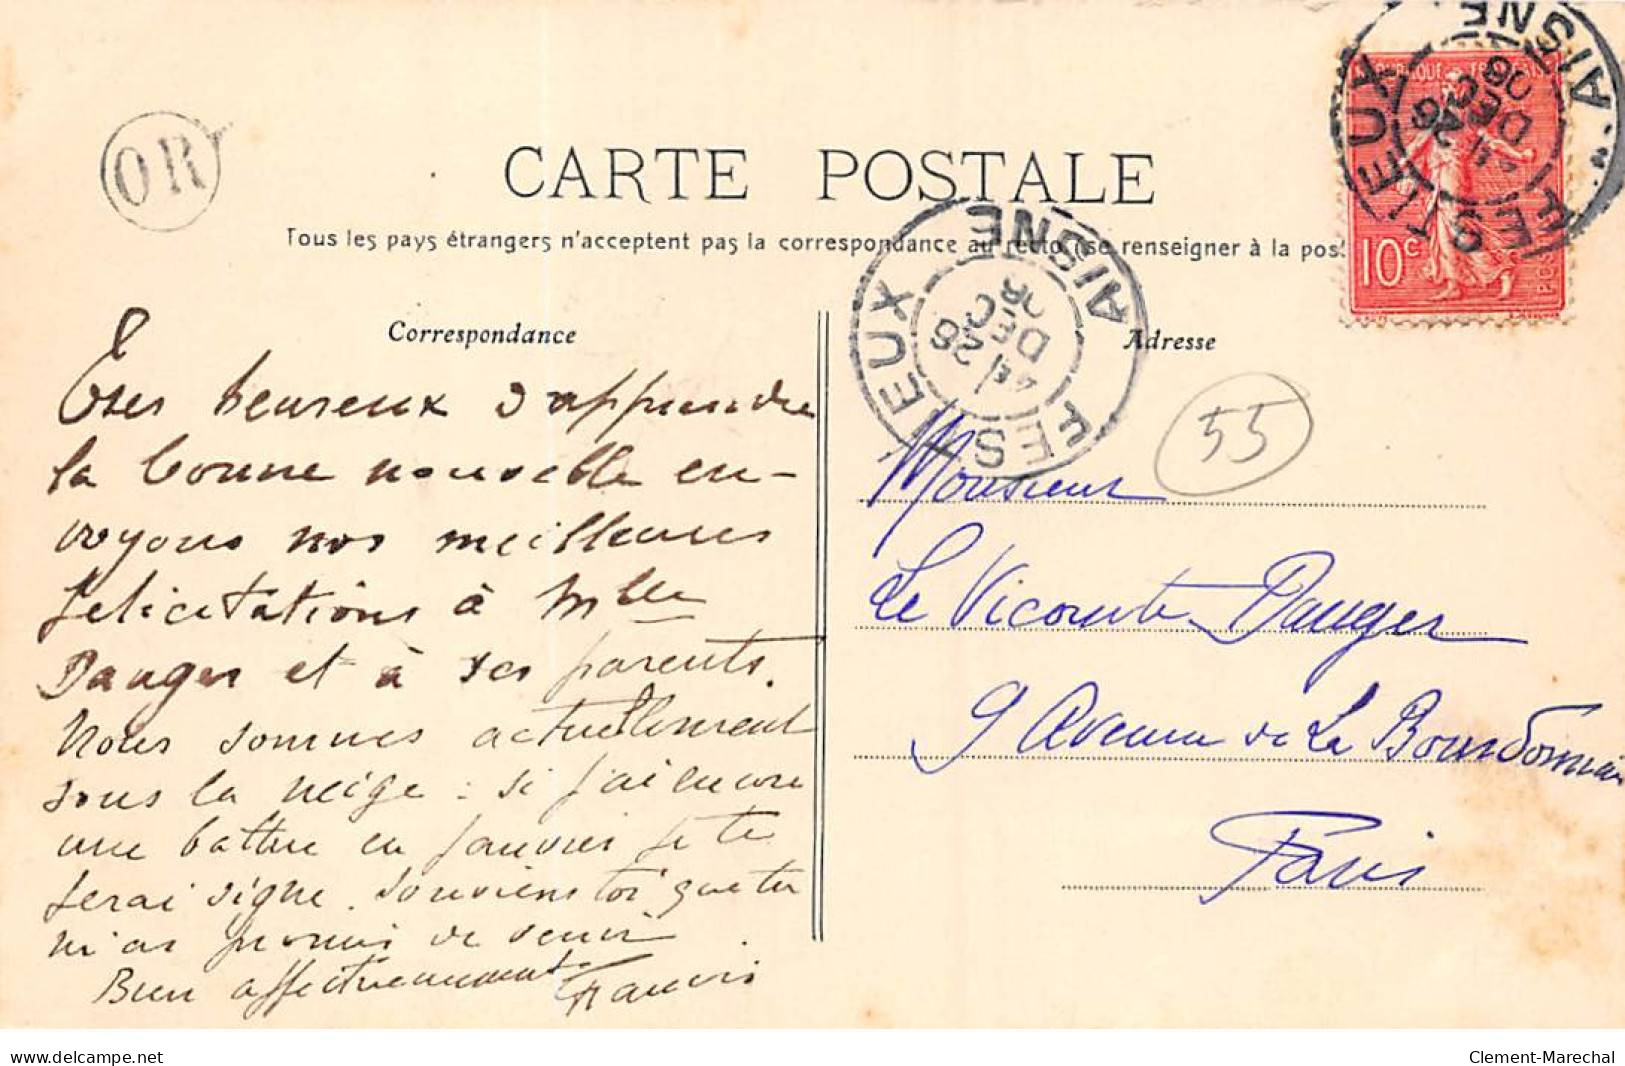 OR
CARTE POSTALE
Tous les pays étrangers n'acceptent pas la correspondance au recto (se renseigner à la pos
RÉPUBLIQUE FRANÇAISE
10c
AISNE
26
DEC
08
Correspondance
Adresse
FESTIEUX
AISNE
28
DEC
08
55
Tres heureux d'apprendre
la bonne nouvelle en-
voyons nos meilleures
felicitations à Mlle
Dauger et à ses parents.
Nous sommes actuellement
sous la neige : si j'ai encore
une battue en janvier je te
ferai signe. souviens toi que tu
m'as promis de venir
Bien affectueusement François
Monsieur
Le Vicomte Dauger
9 Avenue de La Bourdonnais
Paris
www.delcampe.net
Clement-Marechal